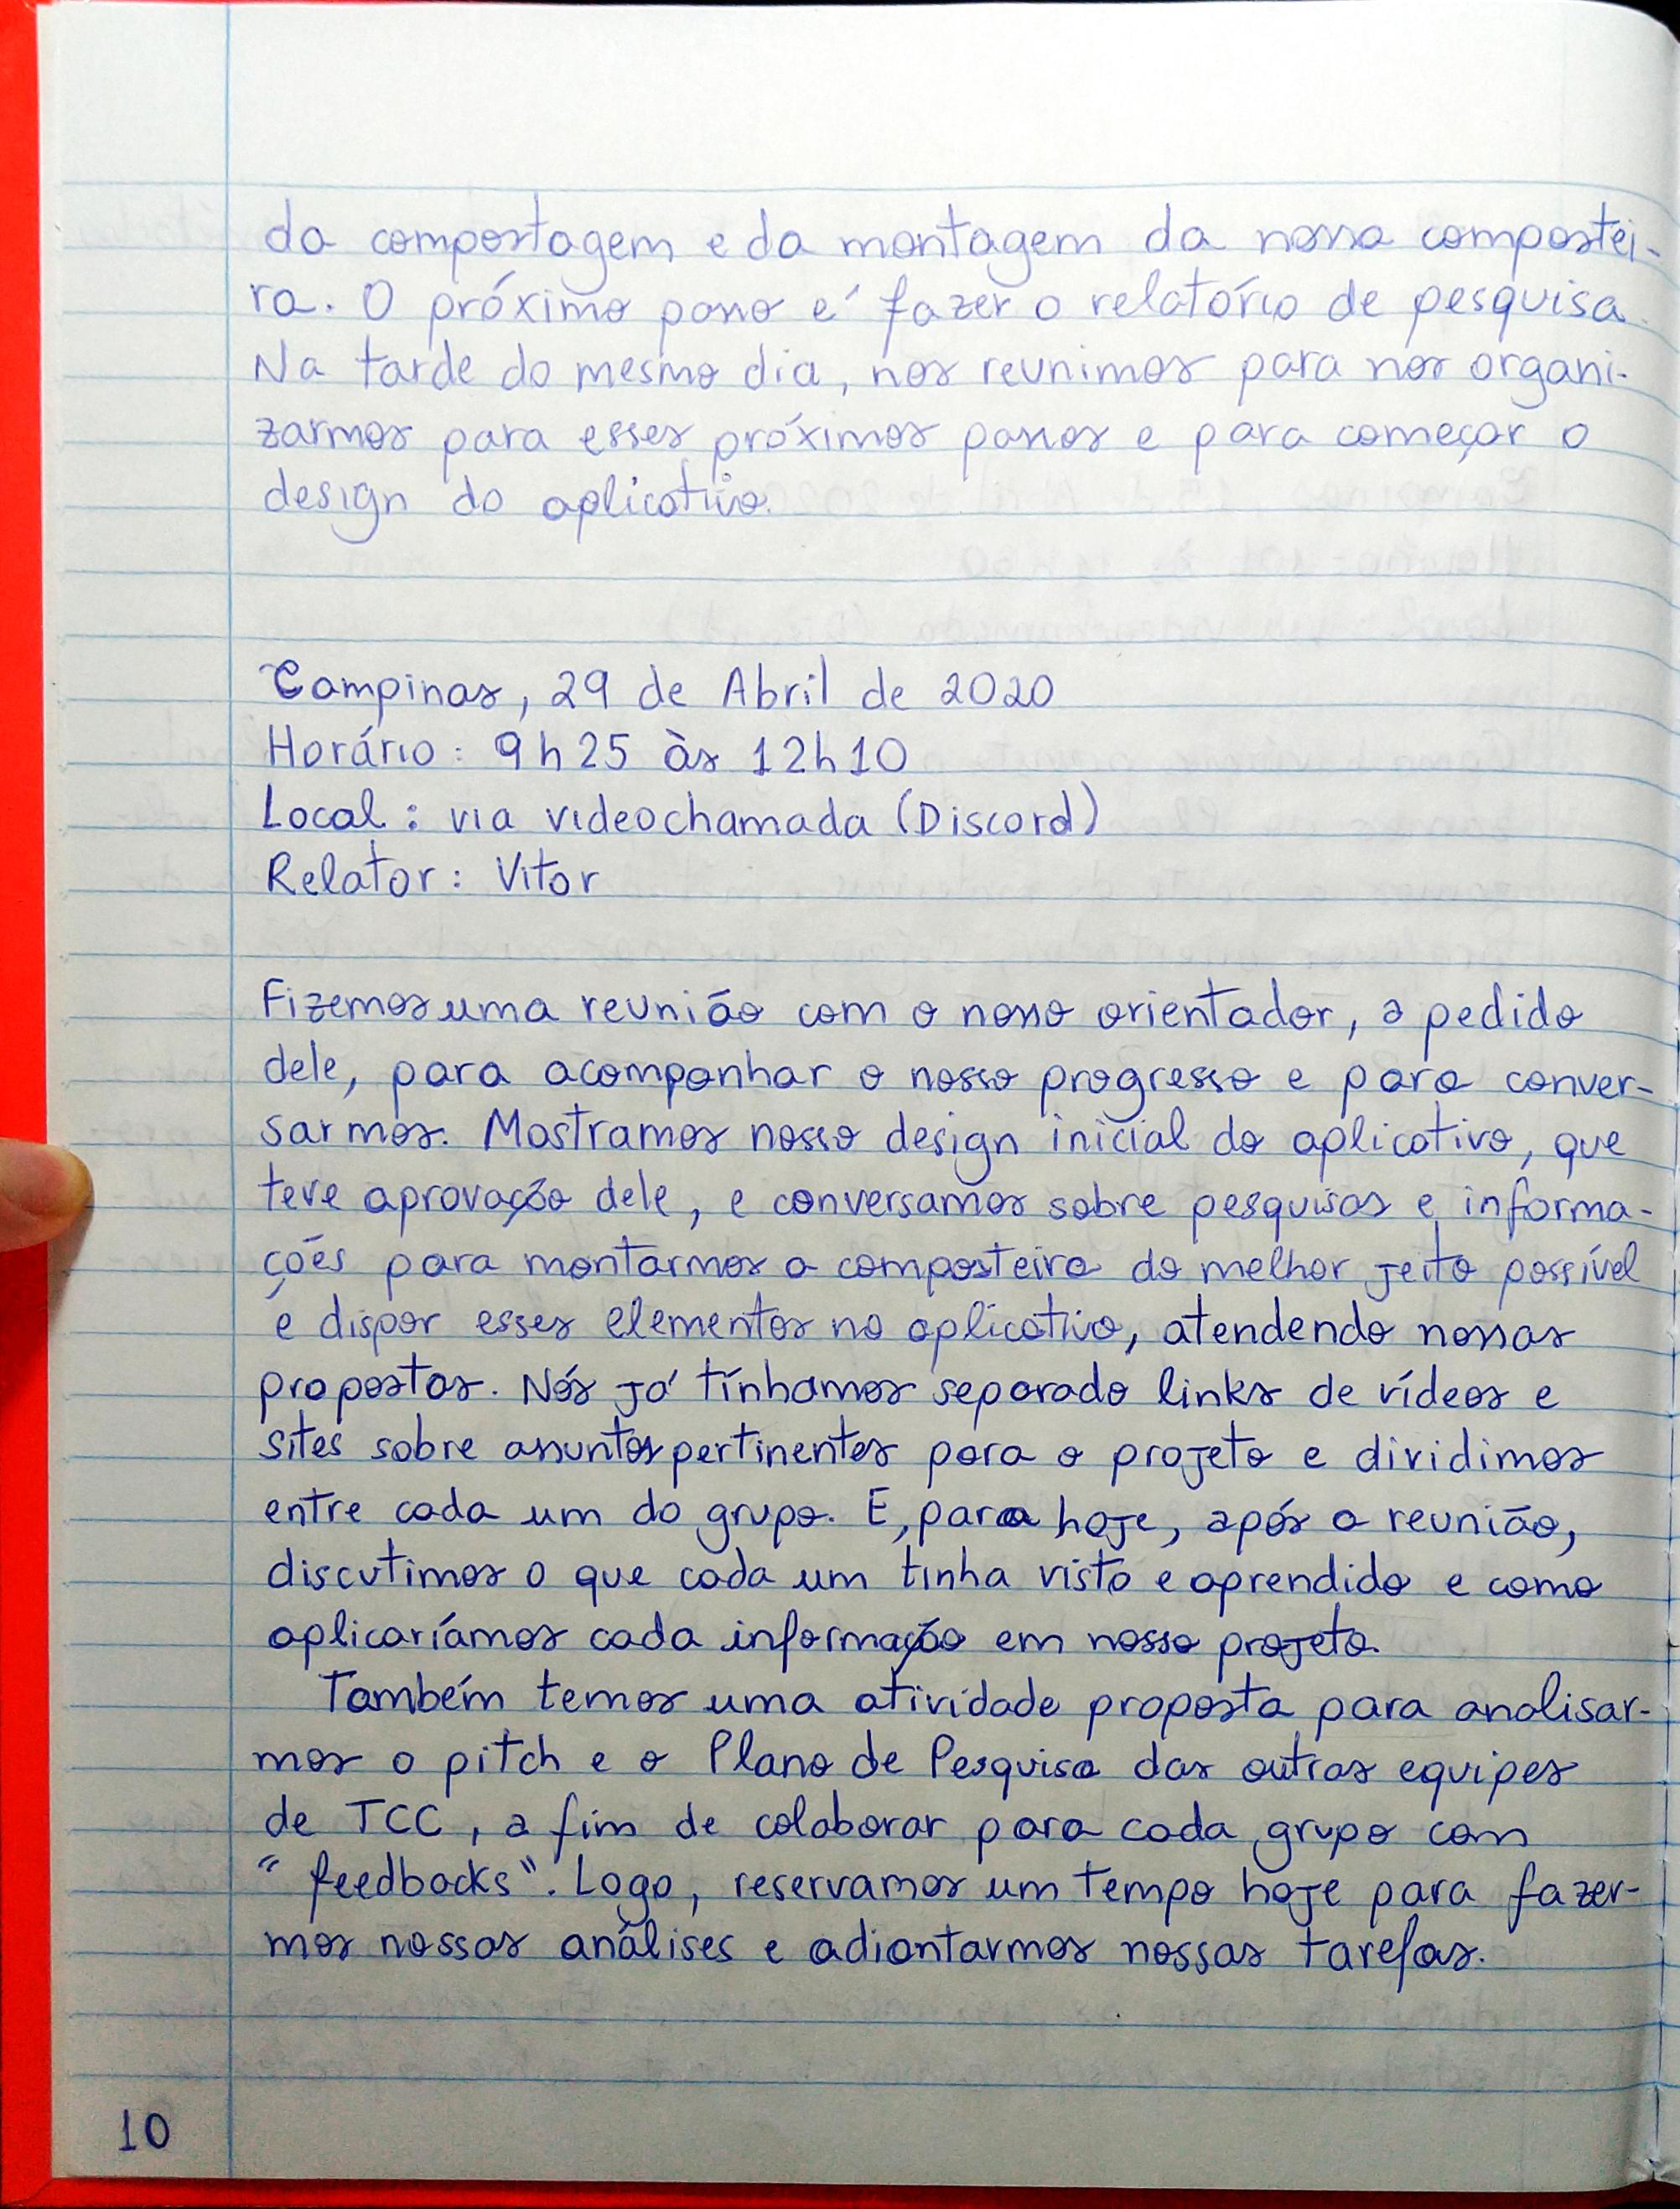 da compostagem e da montagem da nossa compostei-
ra. O próximo passo é fazer o relatório de pesquisa.
Na tarde do mesmo dia, nos reunimos para nos organi-
zarmos para esses próximos passos e para começar o
design do aplicativo.
Campinas, 29 de Abril de 2020
Horário: 9h25 às 12h10
Local: via videochamada (Discord)
Relator: Vitor
Fizemos uma reunião com o nosso orientador, a pedido
dele, para acompanhar o nosso progresso e para conver-
sarmos. Mostramos nosso design inicial do aplicativo, que
teve aprovação dele, e conversamos sobre pesquisas e informa-
ções para montarmos a composteira do melhor jeito possível
e dispor esses elementos no aplicativo, atendendo nossas
propostas. Nós já tínhamos separado links de vídeos e
sites sobre assuntos pertinentes para o projeto e dividimos
entre cada um do grupo. E, para hoje, após a reunião,
discutimos o que cada um tinha visto e aprendido e como
aplicaríamos cada informação em nosso projeto.
Também temos uma atividade proposta para analisar-
mos o pitch e o Plano de Pesquisa das outras equipes
de TCC, a fim de colaborar para cada grupo com
"feedbacks". Logo, reservamos um tempo hoje para fazer-
mos nossas análises e adiantarmos nossas tarefas.
10